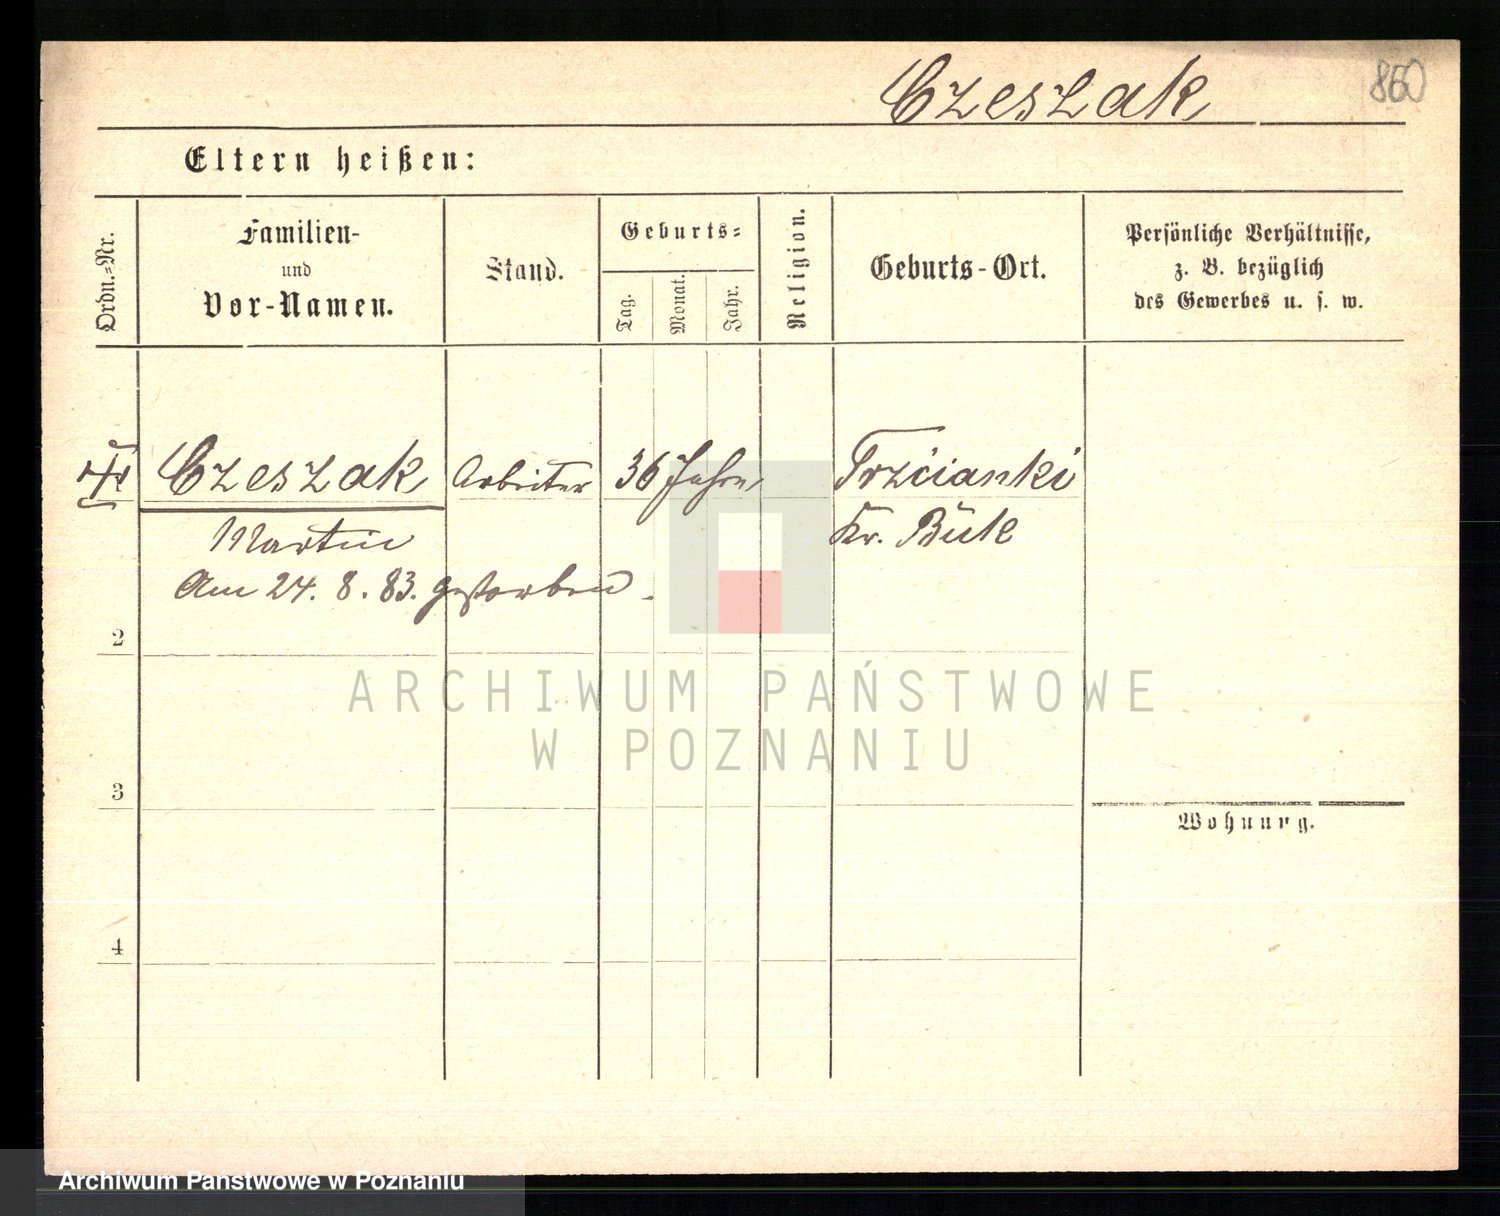 Czeszak
860
Eltern heißen:
Ordn.-Nr.
Familien-
und
Vor-Namen.
Stand.
Geburts-
Tag.
Monat.
Jahr.
Religion.
Geburts-Ort.
Persönliche Verhältnisse,
z. B. bezüglich
des Gewerbes u. s. w.
Czeszak Arbeiter 36 Jahre Trzcianki
Martin Kr. Buk
Am 24. 8. 83. gestorben.
2
3
4
Wohnung.
ARCHIWUM PAŃSTWOWE
W POZNANIU
Archiwum Państwowe w Poznaniu